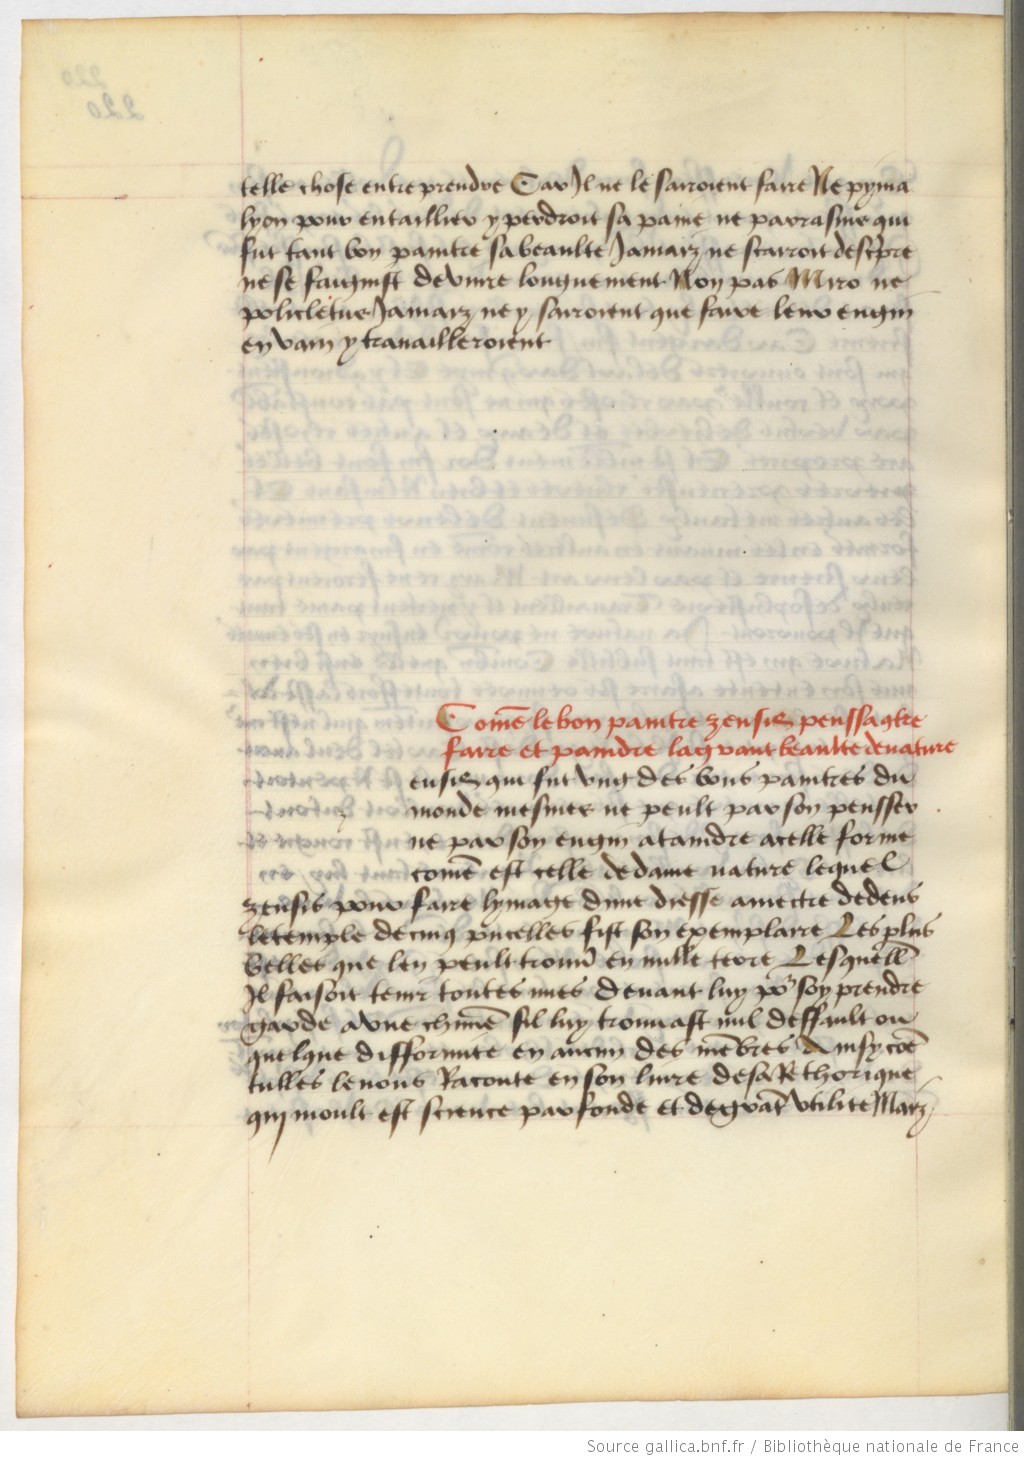 telle chose entreprendre Car Il ne le sarroient faire Ne pyma
lyon pour entaillier y perdroit sa paine ne parrasius qui
fut tant bon paintre sa beaulte Jamaiz ne scarroit descpre
ne se faignist de viure longuement Non pas Miro ne
policletus Jamaiz ne y sarroient que faire leur engin
en vain y trauailleroient
Comē le bon paintre zensis penssa
faire et paindre la grant beaulte de nature
ensis qui fut vng des bons paintres du
monde mesmes ne peult par son pensser
ne par son engin ataindre a celle forme
comē est celle de dame nature lequel
zensis pour faire lymage dune diesse a mectre dedens
le temple de cinq pucelles fist son exemplaire Les plus
belles que len peult trouuer en nulle terre Lesquell
Il faisoit tenir toutes nues deuant luy por soy prendre
garde a vne chūnē sil luy trouuast nul deffault ou
quelque difformite en aucun des mēbres Ainsy cōe
tulles le nous Raconte en son liure de sa Rethorique
qui moult est science parfonde et de grāt vtilite Maiz
Source gallica.bnf.fr / Bibliothèque nationale de France